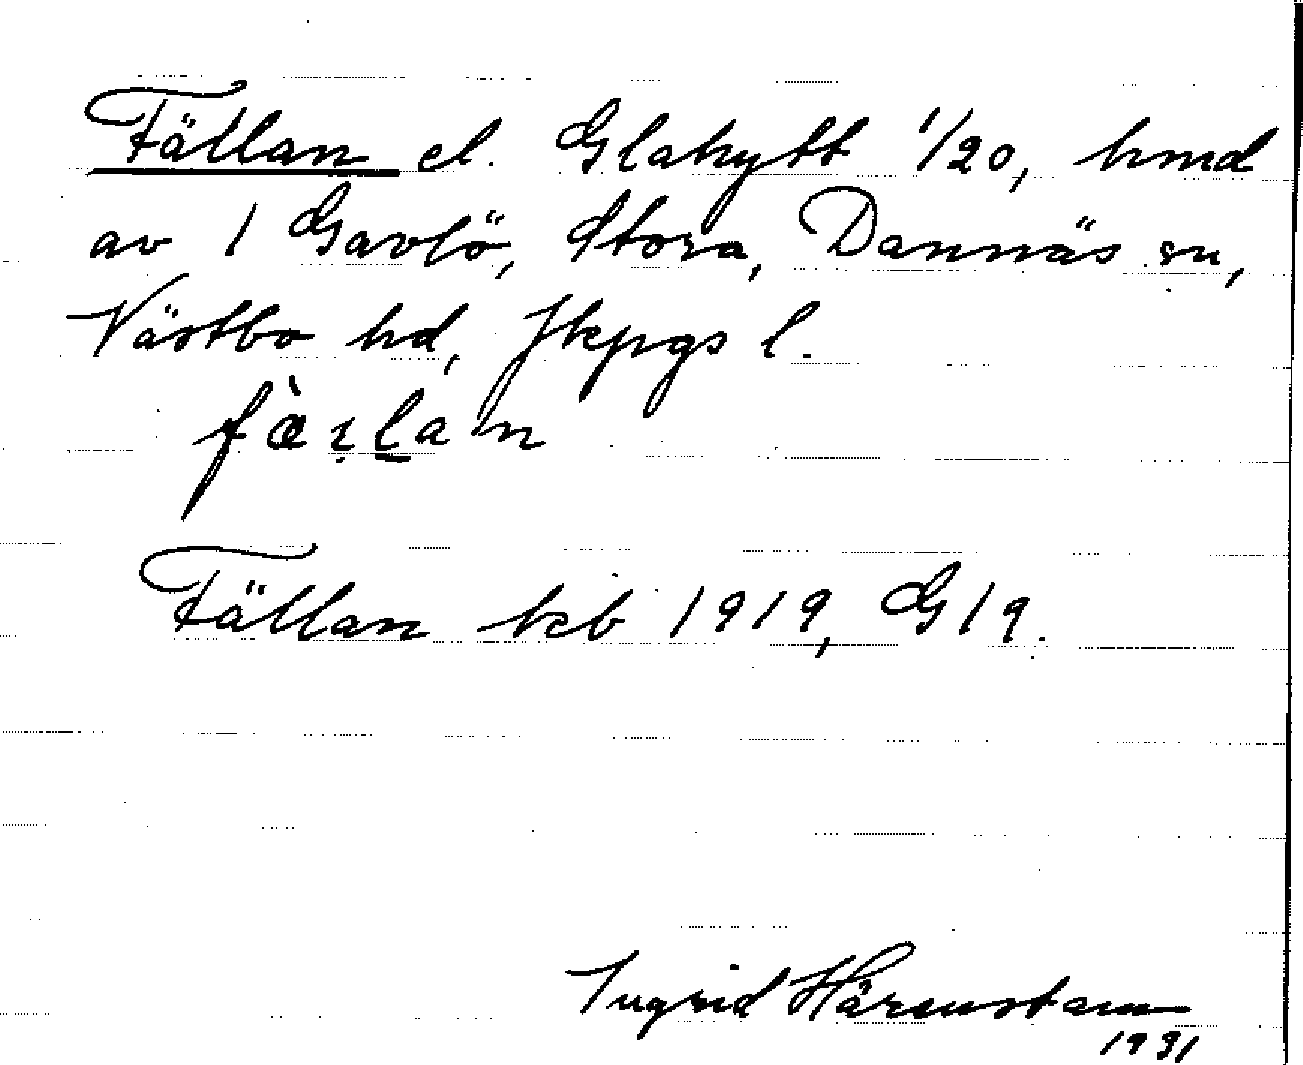 Fällan el. Glahytt 1/20, hmd
av 1 Gavlö, Stora, Dannäs sn,
Västbo hd, Jkpgs l.
fàɛlan
Fällan kb 1919, G19.
Ingrid Härenstam
1931